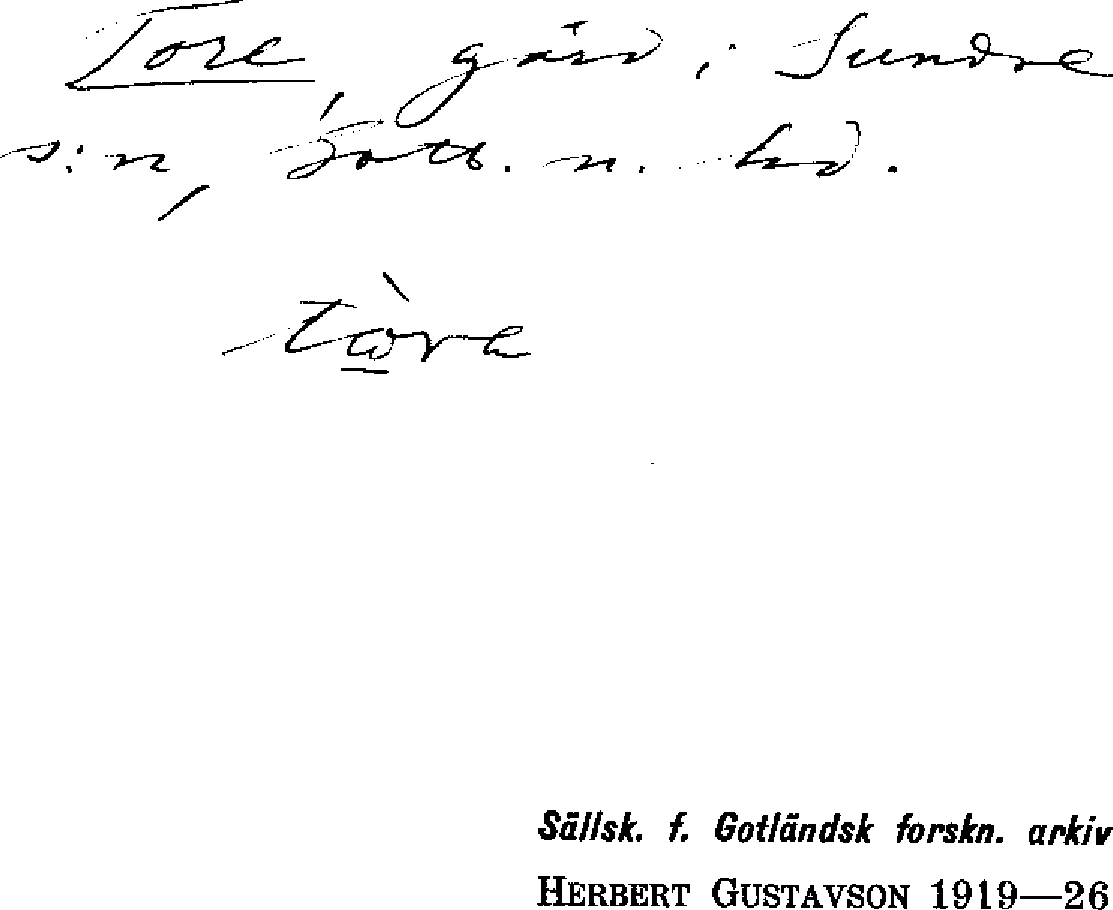 Tore, gård i Sundre
s:n, Gotl. n. hd.
tàre
Sällsk. f. Gotländsk forskn. arkiv
HERBERT GUSTAVSON 1919—26